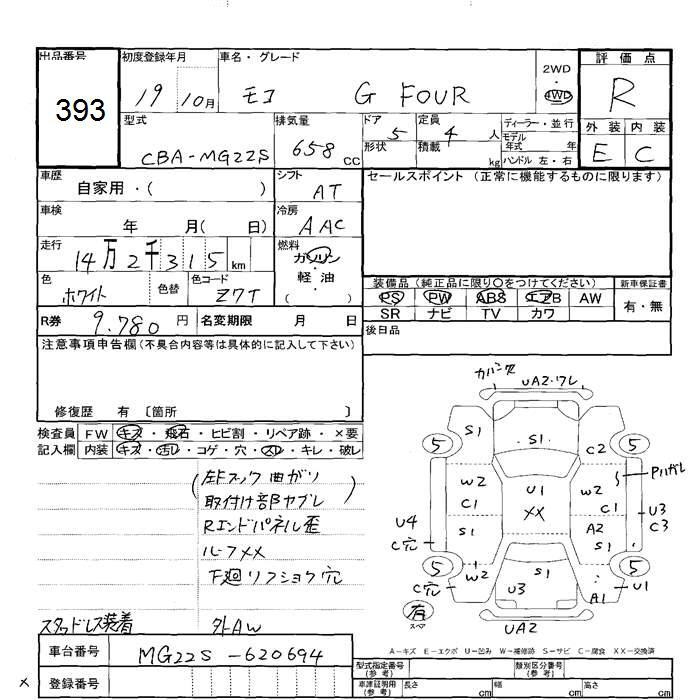 出品番号
393
初度登録年月
19 10月
車名・グレード
モコ G FOUR
2WD
・
4WD
評価点
R
外装 内装
E C
型式
CBA-MG22S
排気量
658 cc
ドア 5
形状
定員 4 人
積載 kg
ディーラー・並行
モデル
年式 年
ハンドル 左・右
車歴
自家用・( )
シフト
AT
セールスポイント (正常に機能するものに限ります)
車検
年 月( 日)
冷房
AAC
走行
14万2千315 km
燃料
ガソリン
軽・油
( )
色
ホワイト
色替
色コード
Z7T
装備品 (純正品に限り○をつけてください)
新車保証書
PS PW ABS エアB AW
有・無
SR ナビ TV カワ
R券 9.780 円
名変期限 月 日
後日品
注意事項申告欄 (不具合内容等は具体的に記入して下さい)
修復歴 有 〔箇所 〕
検査員
記入欄
FW キズ・飛石・ヒビ割・リペア跡・×要
内装 キズ・汚レ・コゲ・穴・スレ・キレ・破レ
(左Fフック曲がり
取付け部Bヤブレ)
Rエンドパネル歪
ルーフXX
下廻リフショク穴
スタッドレス装着 外AW
UA2・ワレ
S1
S1
C2
5
5
W2
C1
U1
XX
W2
C1
Pハガレ
U3
C3
U4
C穴
S1
A2
S1
5
5
C穴
W2
U3
S1
A1
U1
有
スペア
UA2
A-キズ E-エクボ U-凹み W-補修跡 S-サビ C-腐食 XX-交換済
車台番号
MG22S-620694
登録番号
型式指定番号
(参考)
類別区分番号
(参考)
車庫証明用
(参考)
長さ cm 幅 cm 高さ cm